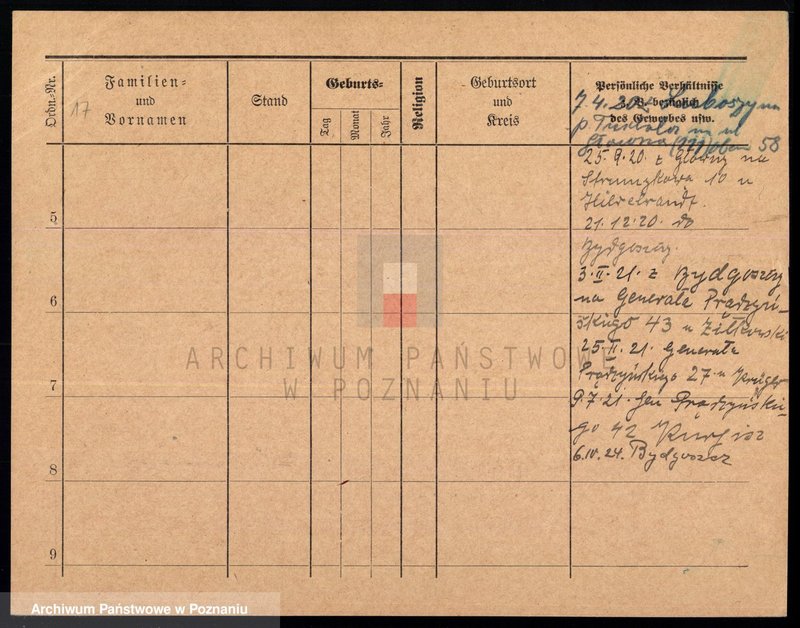 Ordn.-Nr.
Familien-
und
Vornamen
17
Stand
Geburts-
Tag
Monat
Jahr
Religion
Geburtsort
und
Kreis
Persönliche Verhältnisse
z. B. bezüglich
des Gewerbes usw.
7.4.20
p. ul
58
25.9.20. z Główny na
10 u
Hildebrandt.
21.12.20. do
Bydgoszcy.
3.II.21. z Bydgoszczy
na Generała Prądzyń-
skiego 43 u Ziłkowski
25.II.21. Generała
Prądzyńskiego 27 u Krüger
9.7.21. Gen Prądzyńskie-
go 42
6.IV.24. Bydgoszcz
5
6
7
8
9
ARCHIWUM PAŃSTWOWE
W POZNANIU
Archiwum Państwowe w Poznaniu